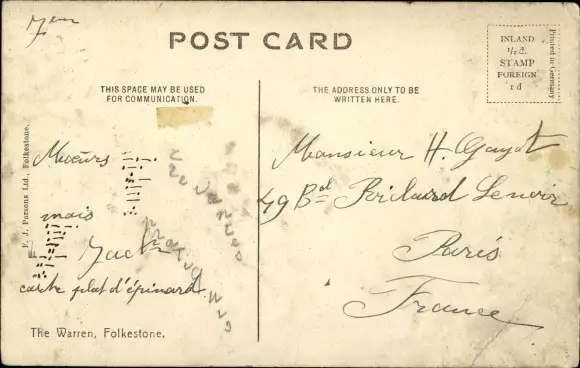 7em
POST CARD
INLAND
1/2 d.
STAMP
FOREIGN
1 d
Printed in Germany
THIS SPACE MAY BE USED
FOR COMMUNICATION.
THE ADDRESS ONLY TO BE
WRITTEN HERE.
F. J. Parsons Ltd., Folkestone.
Moeurs
mais
carte plat d'épinard.
Monsieur H. Gayot
49 Bd Richard Lenoir
Paris
France
The Warren, Folkestone.